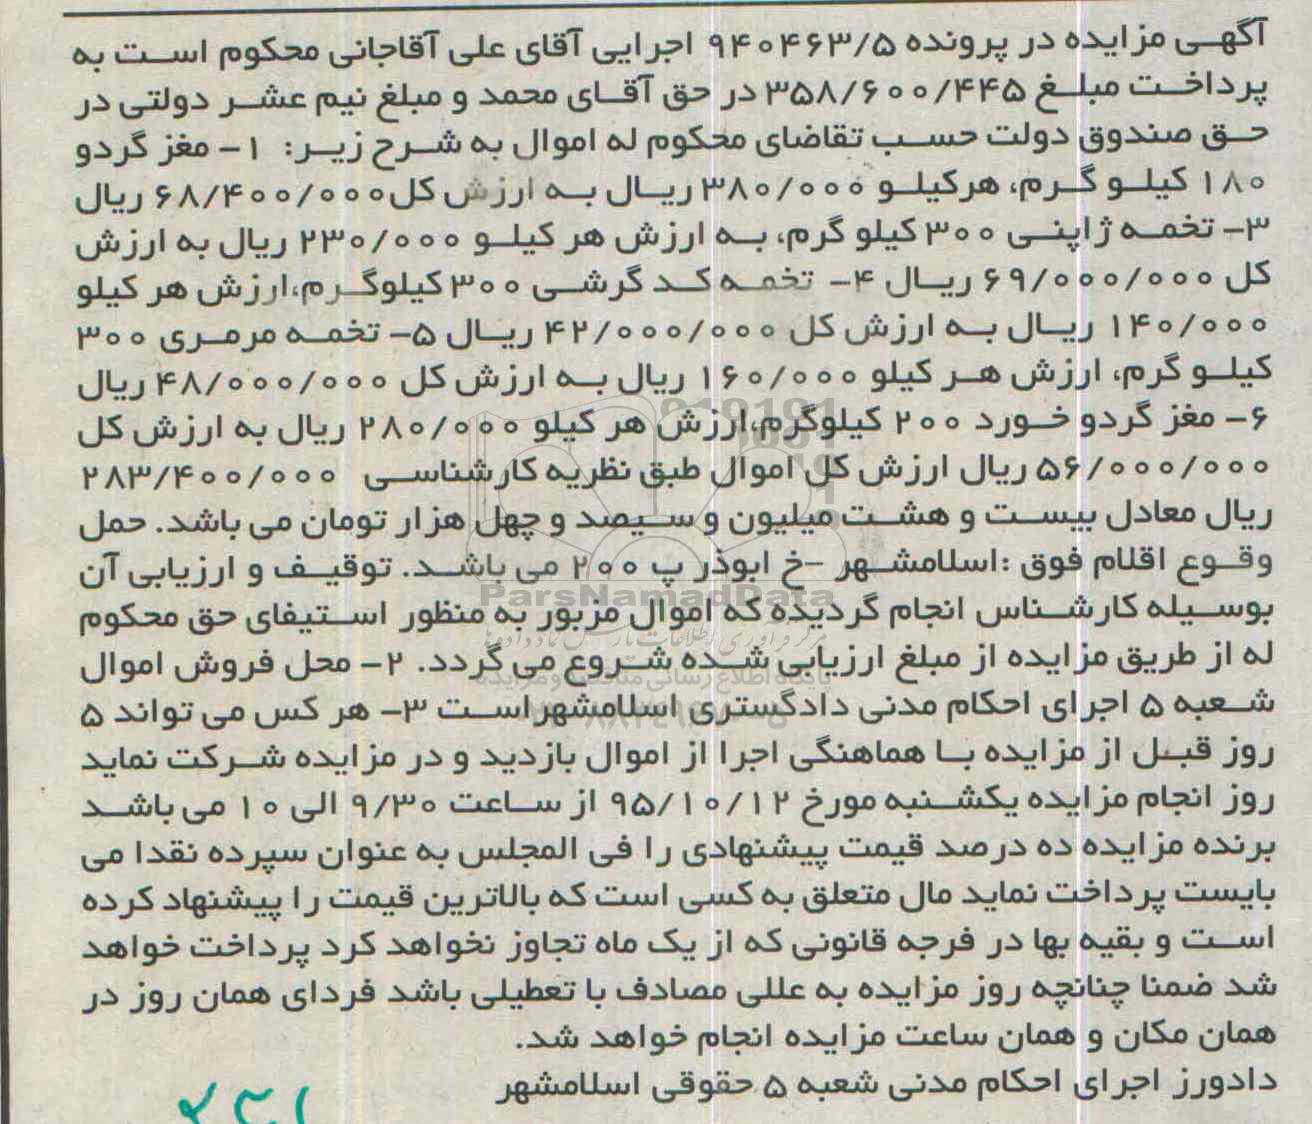 آگهی مزایده در پرونده ۹۴۰۴۶۳/۵ اجرایی آقای علی آقاجانی محکوم است به
پرداخت مبلغ ۳۵۸/۶۰۰/۴۴۵ در حق آقای محمد و مبلغ نیم عشر دولتی در
حق صندوق دولت حسب تقاضای محکوم له اموال به شرح زیر: ۱- مغز گردو
۱۸۰ کیلو گرم، هرکیلو ۳۸۰/۰۰۰ ریال به ارزش کل ۶۸/۴۰۰/۰۰۰ ریال
۳- تخمه ژاپنی ۳۰۰ کیلو گرم، به ارزش هر کیلو ۲۳۰/۰۰۰ ریال به ارزش
کل ۶۹/۰۰۰/۰۰۰ ریال ۴- تخمه کد گرشی ۳۰۰ کیلوگرم،ارزش هر کیلو
۱۴۰/۰۰۰ ریال به ارزش کل ۴۲/۰۰۰/۰۰۰ ریال ۵- تخمه مرمری ۳۰۰
کیلو گرم، ارزش هر کیلو ۱۶۰/۰۰۰ ریال به ارزش کل ۴۸/۰۰۰/۰۰۰ ریال
۶- مغز گردو خورد ۲۰۰ کیلوگرم،ارزش هر کیلو ۲۸۰/۰۰۰ ریال به ارزش کل
۵۶/۰۰۰/۰۰۰ ریال ارزش کل اموال طبق نظریه کارشناسی ۲۸۳/۴۰۰/۰۰۰
ریال معادل بیست و هشت میلیون و سیصد و چهل هزار تومان می باشد. حمل
وقوع اقلام فوق :اسلامشهر -خ ابوذر پ ۲۰۰ می باشد. توقیف و ارزیابی آن
ParsNamadData
بوسیله کارشناس انجام گردیده که اموال مزبور به منظور استیفای حق محکوم
له از طریق مزایده از مبلغ ارزیابی شده شروع می گردد. ۲- محل فروش اموال
شعبه ۵ اجرای احکام مدنی دادگستری اسلامشهر است ۳- هر کس می تواند ۵
روز قبل از مزایده با هماهنگی اجرا از اموال بازدید و در مزایده شرکت نماید
روز انجام مزایده یکشنبه مورخ ۹۵/۱۰/۱۲ از ساعت ۹/۳۰ الی ۱۰ می باشد
برنده مزایده ده درصد قیمت پیشنهادی را فی المجلس به عنوان سپرده نقدا می
بایست پرداخت نماید مال متعلق به کسی است که بالاترین قیمت را پیشنهاد کرده
است و بقیه بها در فرجه قانونی که از یک ماه تجاوز نخواهد کرد پرداخت خواهد
شد ضمنا چنانچه روز مزایده به عللی مصادف با تعطیلی باشد فردای همان روز در
همان مکان و همان ساعت مزایده انجام خواهد شد.
دادورز اجرای احکام مدنی شعبه ۵ حقوقی اسلامشهر